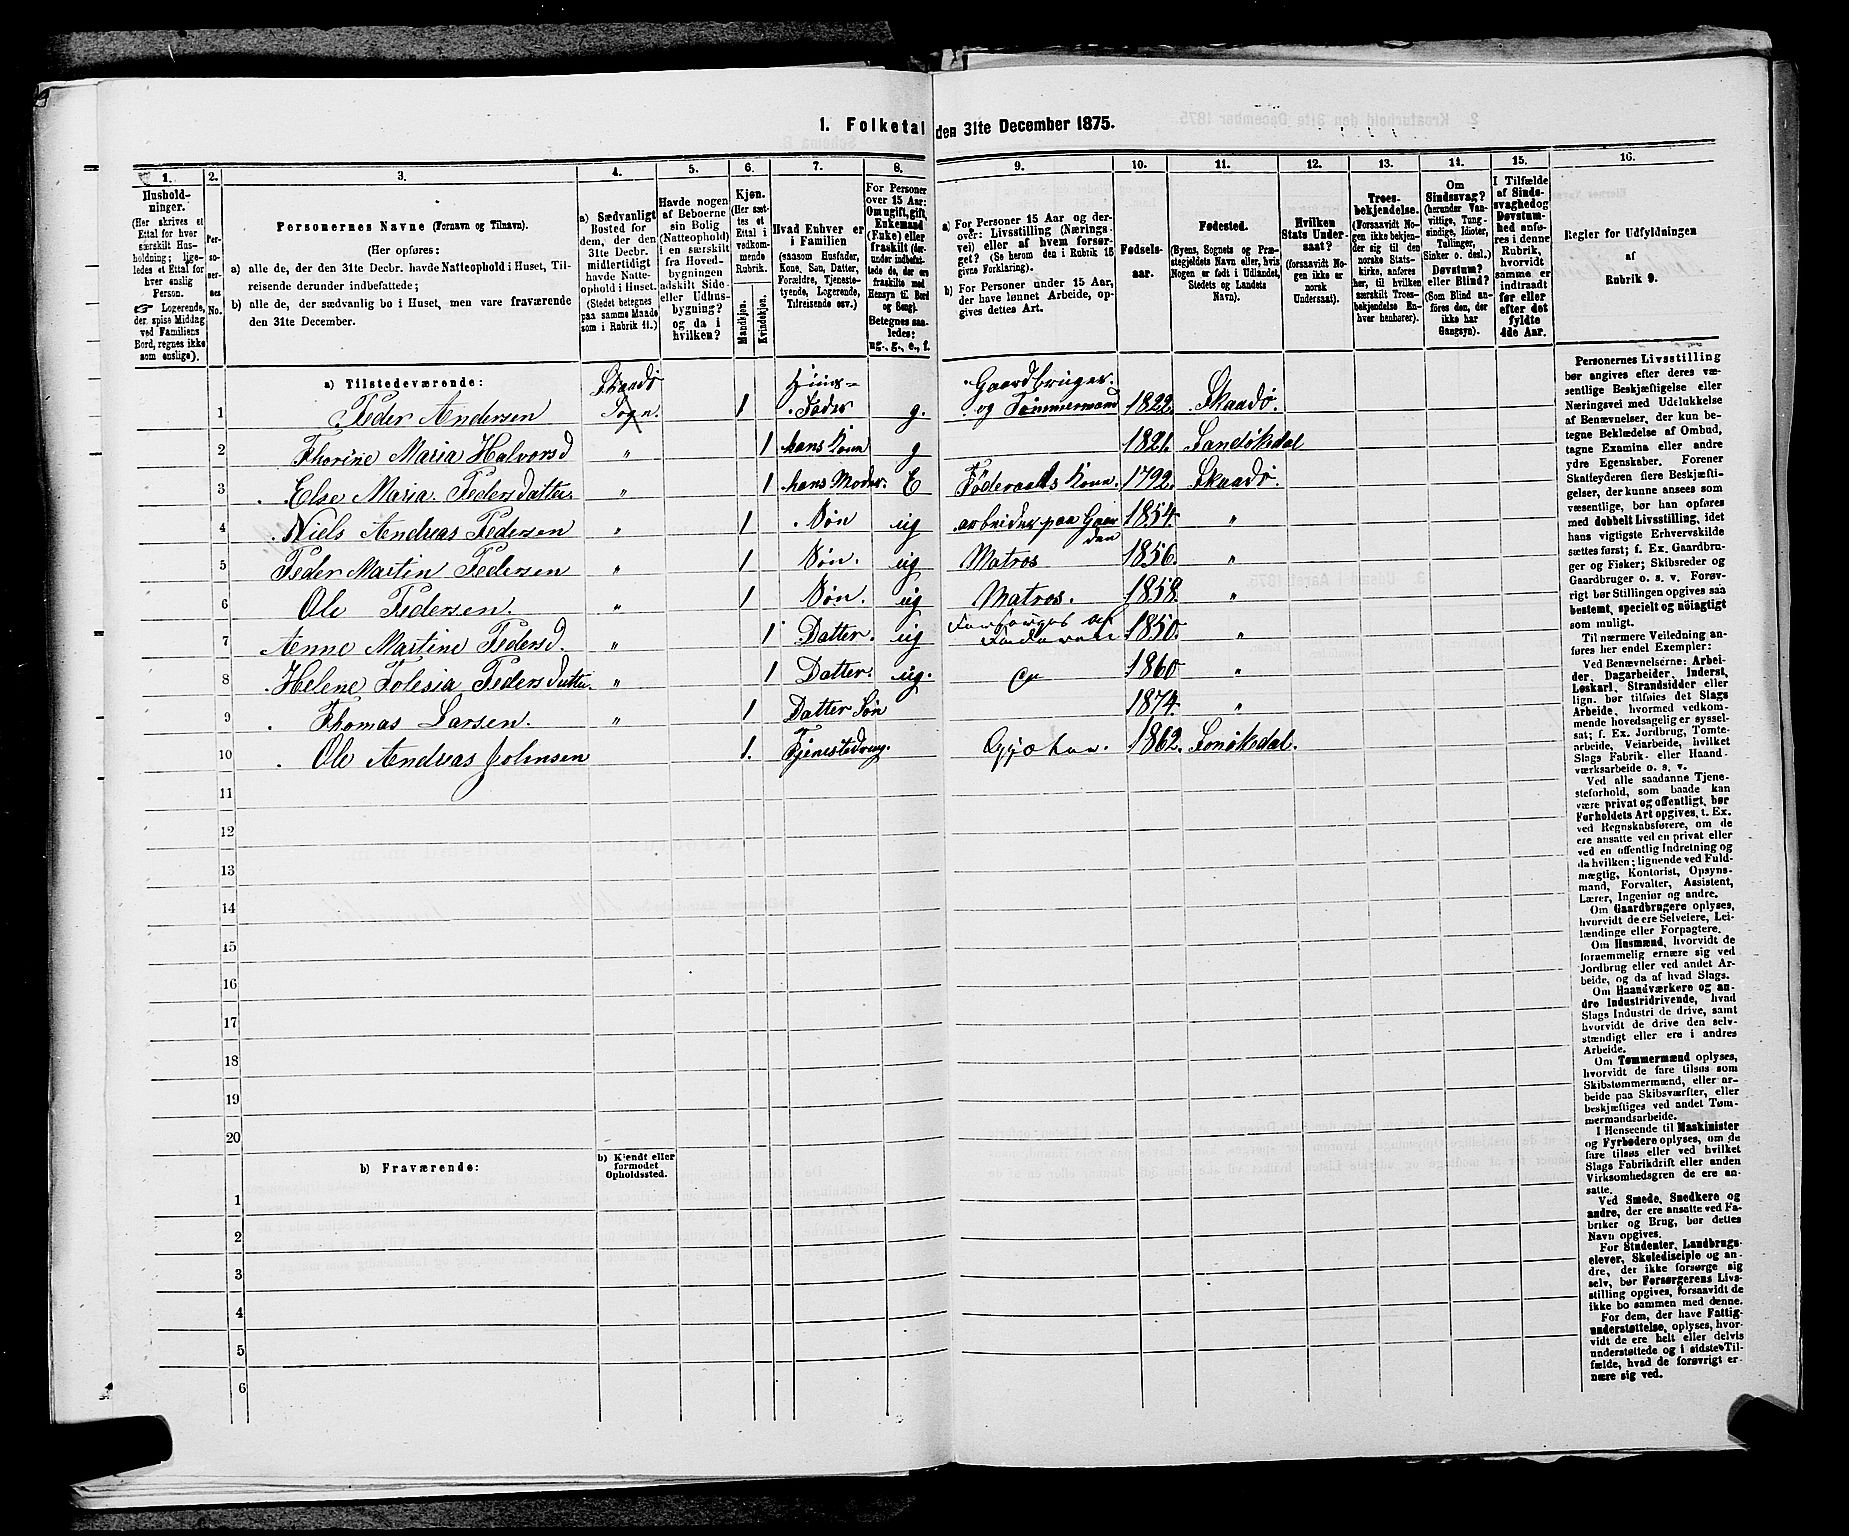 1. Folketal den 31te December 1875.
1. 2. 3. 4. 5. 6. 7. 8. 9. 10. 11. 12. 13. 14. 15. 16.
Hushold-
ninger.
(Her skrives et
Ettal for hver
særskilt Hus-
holdning; lige-
ledes et Ettal for
hver enslig
Person.
Logerende,
der spise Middag
ved Familiens
Bord, regnes ikke
som enslige).
Per-
so-
ner-
nes
No.
Personernes Navne (Fornavn og Tilnavn).
(Her opføres:
a) alle de, der den 31te Decbr. havde Natteophold i Huset, Til-
reisende derunder indbefattede;
b) alle de, der sædvanlig bo i Huset, men vare fraværende
den 31te December.
a) Sædvanligt
Bosted for
dem, der den
31te Decbr.
midlertidigt
havde Natte-
ophold i Huset.
(Stedet betegnes
paa samme Maade
som i Rubrik 11.)
Havde nogen
af Beboerne
sin Bolig
(Natteophold)
i en særskilt
fra Hoved-
bygningen
adskilt Side-
eller Udhus-
bygning?
og da i
hvilken?
Kjøn.
(Her sæt-
tes et
Ettal i
vedkom-
mende
Rubrik.
Mandkjøn.
Kvindekjøn.
Hvad Enhver er
i Familien
(saasom Husfader,
Kone, Søn, Datter,
Forældre, Tjeneste-
tyende, Logerende,
Tilreisende osv.)
For Personer
over 15 Aar:
Om ugift, gift,
Enkemand
(Enke) eller
fraskilt (der-
under indbefat-
tede de, der ere
fraskilte med
Hensyn til Bord
og Seng).
Betegnes saa-
ledes:
ug., g., e., f.
a) For Personer 15 Aar og der-
over: Livsstilling (Nærings-
vei) eller af hvem forsør-
get? (Se herom den i Rubrik 16
givne Forklaring).
b) For Personer under 15 Aar,
der have lønnet Arbeide, op-
gives dettes Art.
Fødsels-
aar.
Fødested.
(Byens, Sognets og Præ-
stegjeldets Navn eller, hvis
Nogen er født i Udlandet,
Stedets og Landets
Navn).
Hvilken
Stats Under-
saat?
(forsaavidt No-
gen ikke er
norsk
Undersaat).
Troes-
bekjendelse.
(Forsaavidt No-
gen ikke bekjen-
der sig til den
norske Stats-
kirke, anføres
her, til hvilken
særskilt Troes-
bekjendelse En-
hver henhører).
Om
Sindssvag?
(herunder Van-
vittige, Tung-
sindige, Idioter,
Tullinger,
Sinker o. desl.)
Døvstum?
eller Blind?
(Som Blind an-
føres den, der
ikke har
Gangsyn).
I Tilfælde
af Sinds-
svaghed og
Døvstum-
hed anfø-
res i denne
Rubrik,
hvorvidt
samme er
indtraadt
før eller
efter det
fyldte
4de Aar.
Regler for Udfyldningen
af
Rubrik 9.
a) Tilstedeværende:
1 Peder Andersen Skaadø Sogn. 1 Huus-Fader g. Gaardbruger og Tømmermand 1822. Skaadø.
2 Thorine Maria Halvorsd " 1 hans Kone g 1821. Sandøkedal
3 Else Maria Pedersdatter. " 1 hans Moder. E Føderaads Kone. 1792. Skaadø.
4 Niels Andreas Pedersen " 1 Søn ug arbeider paa Gaarden 1854. "
5 Peder Martin Pedersen " 1 Søn. ug Matros 1856. "
6 Ole Pedersen. " 1 Søn. ug Matros. 1858. "
7 Anne Martine Pedersd. " 1 Datter. ug Forsørges af Faderen 1850. "
8 Helene Tolesia Pedersdatter. " 1 Datter. ug. 1860 "
9 Thomas Larsen. " 1 Datter Søn 1874. "
10 Ole Andreas Johnsen 1. Tjenestedreng. 1862. Sanøkedal.
11
12
13
14
15
16
17
18
19
20
b) Fraværende:
b) Kjendt eller
formodet
Opholdssted.
1
2
3
4
5
6
Personernes Livsstilling
bør angives efter deres væ-
sentlige Beskjæftigelse eller
Næringsvei med Udelukkelse
af Benævnelser, der kun be-
tegne Beklædelse af Ombud,
tagne Examina eller andre
ydre Egenskaber. Forener
Skatteyderen flere Beskjæfti-
gelser, der kunne ansees som
væsentlige, bør han opføres
med dobbelt Livsstilling, idet
hans vigtigste Erhvervskilde
sættes først; f. Ex. Gaardbru-
ger og Fisker; Skibsreder og
Gaardbruger o. s. v. Forøv-
rigt bør Stillingen opgives saa
bestemt, specielt og nöiagtigt
som muligt.
Til nærmere Veiledning an-
føres her endel Exempler:
Ved Benævnelserne: Arbei-
der, Dagarbeider, Inderst,
Løskarl, Strandsidder eller
lign. bør tilføies det Slags
Arbeide, hvormed vedkom-
mende hovedsagelig er syssel-
sat; f. Ex. Jordbrug, Tomte-
arbeide, Veiarbeide, hvilket
Slags Fabrik- eller Haand-
værksarbeide o. s. v.
Ved alle saadanne Tjene-
steforhold, som baade kan
være privat og offentligt, bør
Forholdets Art opgives, t. Ex.
ved Regnskabsførere, om de
ere ansatte ved en privat eller
ved en offentlig Indretning og
da hvilken; lignende ved Fuld-
mægtig, Kontorist, Opsyns-
mand, Forvalter, Assistent,
Lærer, Ingeniør og andre.
Om Gaardbrugere oplyses,
hvorvidt de ere Selveiere, Lei-
lændinge eller Forpagtere.
Om Husmænd, hvorvidt de
fornemmelig ernære sig ved
Jordbrug eller ved andet Ar-
beide, og da af hvad Slags.
Om Haandværkere og an-
dre Industridrivende, hvad
Slags Industri de drive, samt
hvorvidt de drive den selv-
stændigt eller ere i andres
Arbeide.
Om Tømmermænd oplyses,
hvorvidt de fare tilsøs som
Skibstømmermænd, eller ar-
beide paa Skibsværfter, eller
beskjæftiges ved andet Tøm-
mermandsarbeide.
I Henseende til Maskinister
og Fyrbødere oplyses, om de
fare tilsøs eller ved hvilket
Slags Fabrikdrift eller anden
Virksomhedsgren de ere an-
satte.
Ved Smede, Snedkere og
andre, der ere ansatte ved Fa-
briker og Brug, bør dettes
Navn opgives.
For Studenter, Landbrugs-
elever, Skoledisciple og an-
dre, der ikke forsørge sig
selv, bør Forsørgerens Livs-
stilling opgives, forsaavidt de
ikke bo sammen med denne.
For dem, der have Fattig-
understøttelse, oplyses, hvor-
vidt de ere helt eller delvis
understøttede og i sidste Til-
fælde, hvad de forøvrigt er-
nære sig ved.